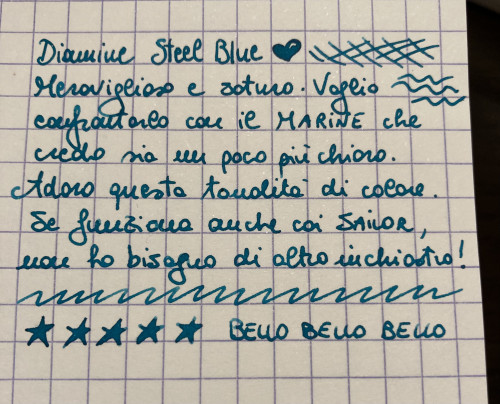 Diamine Steel Blue
Meraviglioso e saturo. Voglio
confrontarlo con il MARINE che
credo sia un poco più chiaro.
Adoro questa tonalità di colore.
Se funziona anche coi SAILOR,
non ho bisogno di altro inchiostro!
BELLO BELLO BELLO